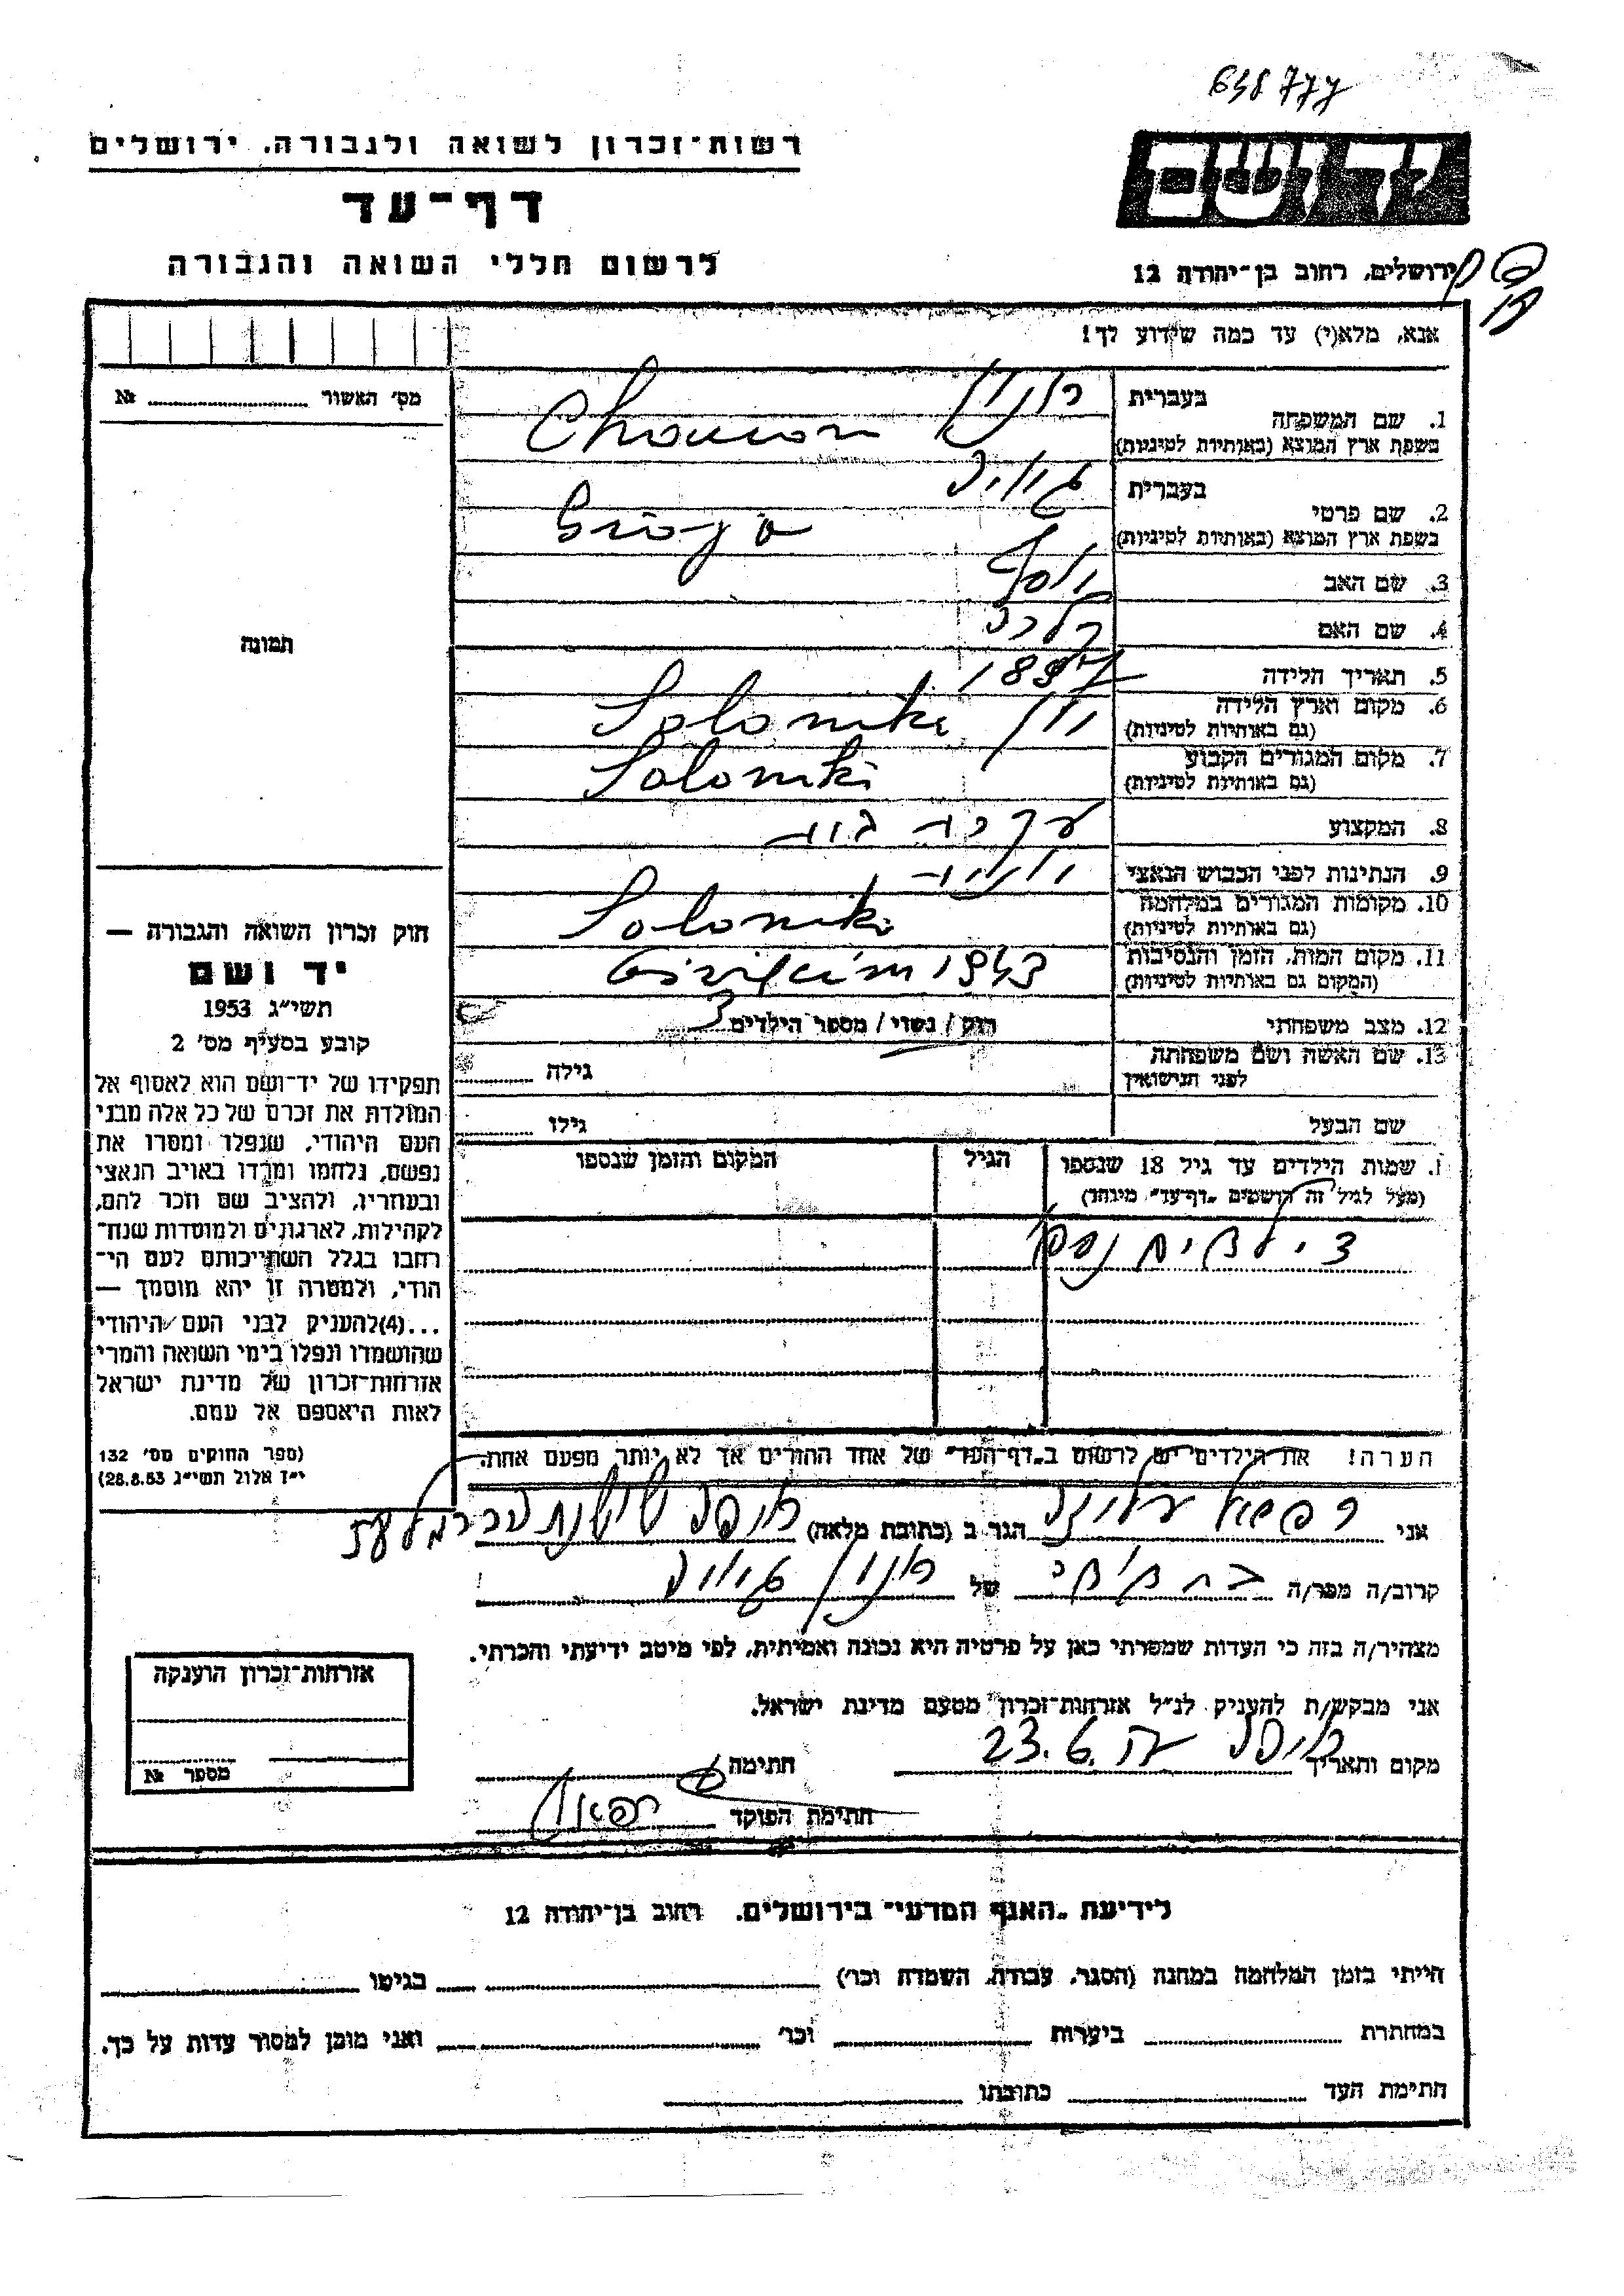 638777
רשות־זכרון לשואה ולגבורה, ירושלים
יד ושם
דף־עד
לרשום חללי השואה והגבורה
ירושלים, רחוב בן־יהודה 12
אנא, מלא(י) עד כמה שידוע לך!
מס׳ האשור № 
1. שם המשפחה בעברית חנון
בשפת ארץ המוצא (באותיות לטיניות)
2. שם פרטי בעברית
בשפת ארץ המוצא (באותיות לטיניות)
3. שם האב יוסף
4. שם האם
5. תאריך הלידה 1897
6. מקום וארץ הלידה יון Saloniki
(גם באותיות לטיניות)
7. מקום המגורים הקבוע Saloniki
(גם באותיות לטיניות)
8. המקצוע עקרת בית
9. הנתינות לפני הכבוש הנאצי יוניה
10. מקומות המגורים במלחמה Saloniki
(גם באותיות לטיניות)
11. מקום המות, הזמן והנסיבות 1943
(המקום גם באותיות לטיניות)
12. מצב משפחתי רווק / נשוי / מספר הילדים 3
13. שם האשה ושם משפחתה גילה
לפני הנישואין
שם הבעל גילו
תמונה
חוק זכרון השואה והגבורה —
יד ושם
תשי״ג 1953
קובע בסעיף מס׳ 2
תפקידו של יד־ושם הוא לאסוף אל
המולדת את זכרם של כל אלה מבני
העם היהודי, שנפלו ומסרו את
נפשם, נלחמו ומרדו באויב הנאצי
ובעוזריו, ולהציב שם וזכר להם,
לקהילות, לארגונים ולמוסדות שנח־
רבו בגלל השתייכותם לעם הי־
הודי, ולמטרה זו יהא מוסמך —
...(4)להעניק לבני העם היהודי
שהושמדו ונפלו בימי השואה והמרי
אזרחות־זכרון של מדינת ישראל
לאות היאספם אל עמם.
(ספר החוקים מס׳ 132
י״ז אלול תשי״ג 28.8.53)
1. שמות הילדים עד גיל 18 שנספו הגיל המקום והזמן שנספו
(מעל לגיל זה רושמים „דף־עד״ מיוחד)
3 ילדים נספו
הערה! את הילדים יש לרשום ב„דף־העד״ של אחד ההורים אך לא יותר מפעם אחת.
אני רפאל עליזה הגר ב (כתובת מלאה) חיפה
קרוב/ה מכר/ה בת דודי של חנון
מצהיר/ה בזה כי העדות שמסרתי כאן על פרטיה היא נכונה ואמיתית, לפי מיטב ידיעתי והכרתי.
אני מבקש/ת להעניק לנ״ל אזרחות־זכרון מטעם מדינת ישראל.
מקום ותאריך חיפה 23.6. חתימה
חתימת הפוקד
אזרחות־זכרון הוענקה
מספר №
לידיעת „האגף המדעי״ בירושלים. רחוב בן־יהודה 12
הייתי בזמן המלחמה במחנה (הסגר, עבודה, השמדה וכו׳) בגיטו
במחתרת ביערות וכו׳ ואני מוכן למסור עדות על כך.
חתימת העד כתובתו